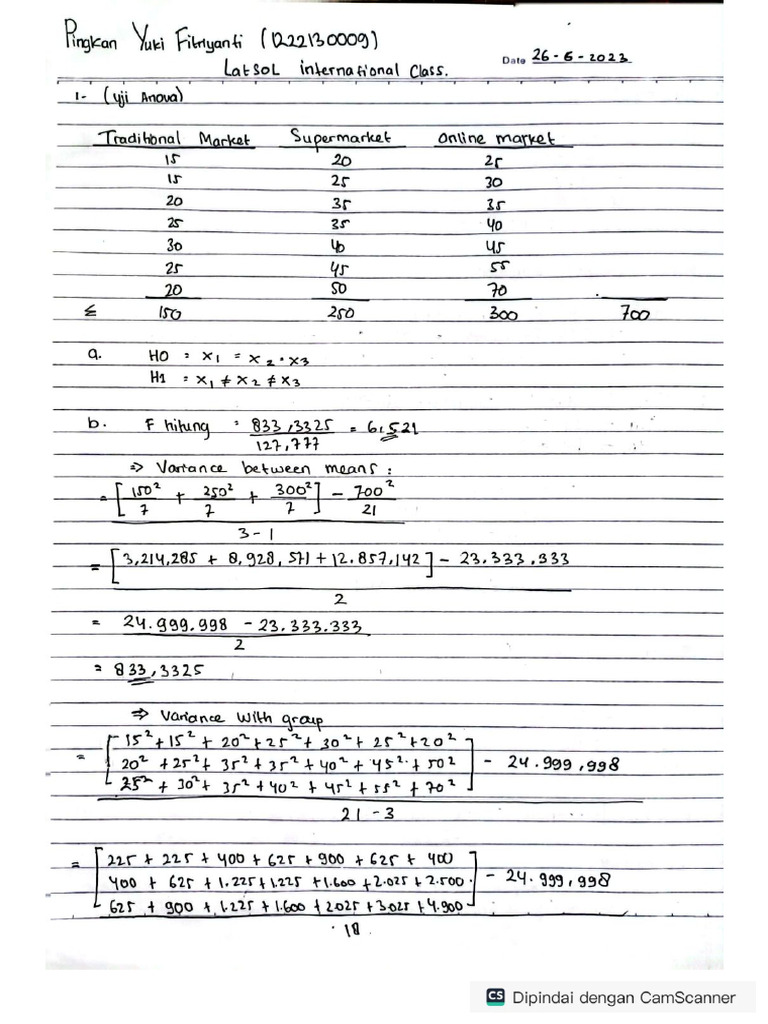 Pingkan Yuki Fitriyanti (1222130009)
Latsol international Class.
Date 26-6-2023
1- (Uji Anova)
Traditional Market Supermarket Online market
15 20 25
15 25 30
20 35 35
25 35 40
30 40 45
25 45 55
20 50 70
Σ 150 250 300 700
a. H0 = x₁ = x₂ = x₃
H1 = x₁ ≠ x₂ ≠ x₃
b. F hitung = 833,3325 / 127,777 = 6,521
⇒ Variance between means :
= [150²/7 + 250²/7 + 300²/7] - 700²/21
3-1
= [3,214,285 + 8,928,571 + 12.857,142] - 23.333.333
2
= 24.999.998 - 23.333.333
2
= 833,3325
⇒ Variance With group
= [15² + 15² + 20² + 25² + 30² + 25² + 20²
20² + 25² + 35² + 35² + 40² + 45² + 50²
25² + 30² + 35² + 40² + 45² + 55² + 70²] - 24.999,998
21 - 3
= [225 + 225 + 400 + 625 + 900 + 625 + 400
400 + 625 + 1.225 + 1.225 + 1.600 + 2.025 + 2.500
625 + 900 + 1.225 + 1.600 + 2025 + 3.025 + 4.900] - 24.999,998
18
CS Dipindai dengan CamScanner